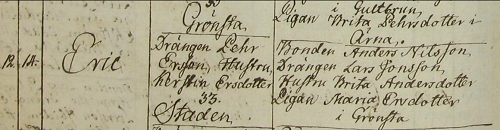 12. 14. Eric
Grönsta
Drängen Pehr
Ersson, Hustru
Kerstin Ersdotter
33.
Staden
Pigan Brita Pehrsdotter i
Årna.
Bonden Anders Nilsson,
Drängen Lars Jonsson,
Hustru Brita Andersdotter
Pigan Maria Ersdotter
i Grönsta